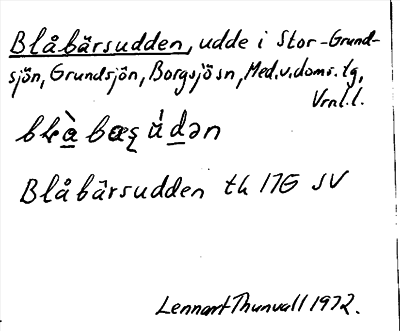 Blåbärsudden, udde i Stor-Grund-
sjön, Grundsjön, Borgsjö sn, Med.v.doms.lg,
Vrnl.l.
Blåbärsudden tk 17G SV
Lennart Thunvall 1972.